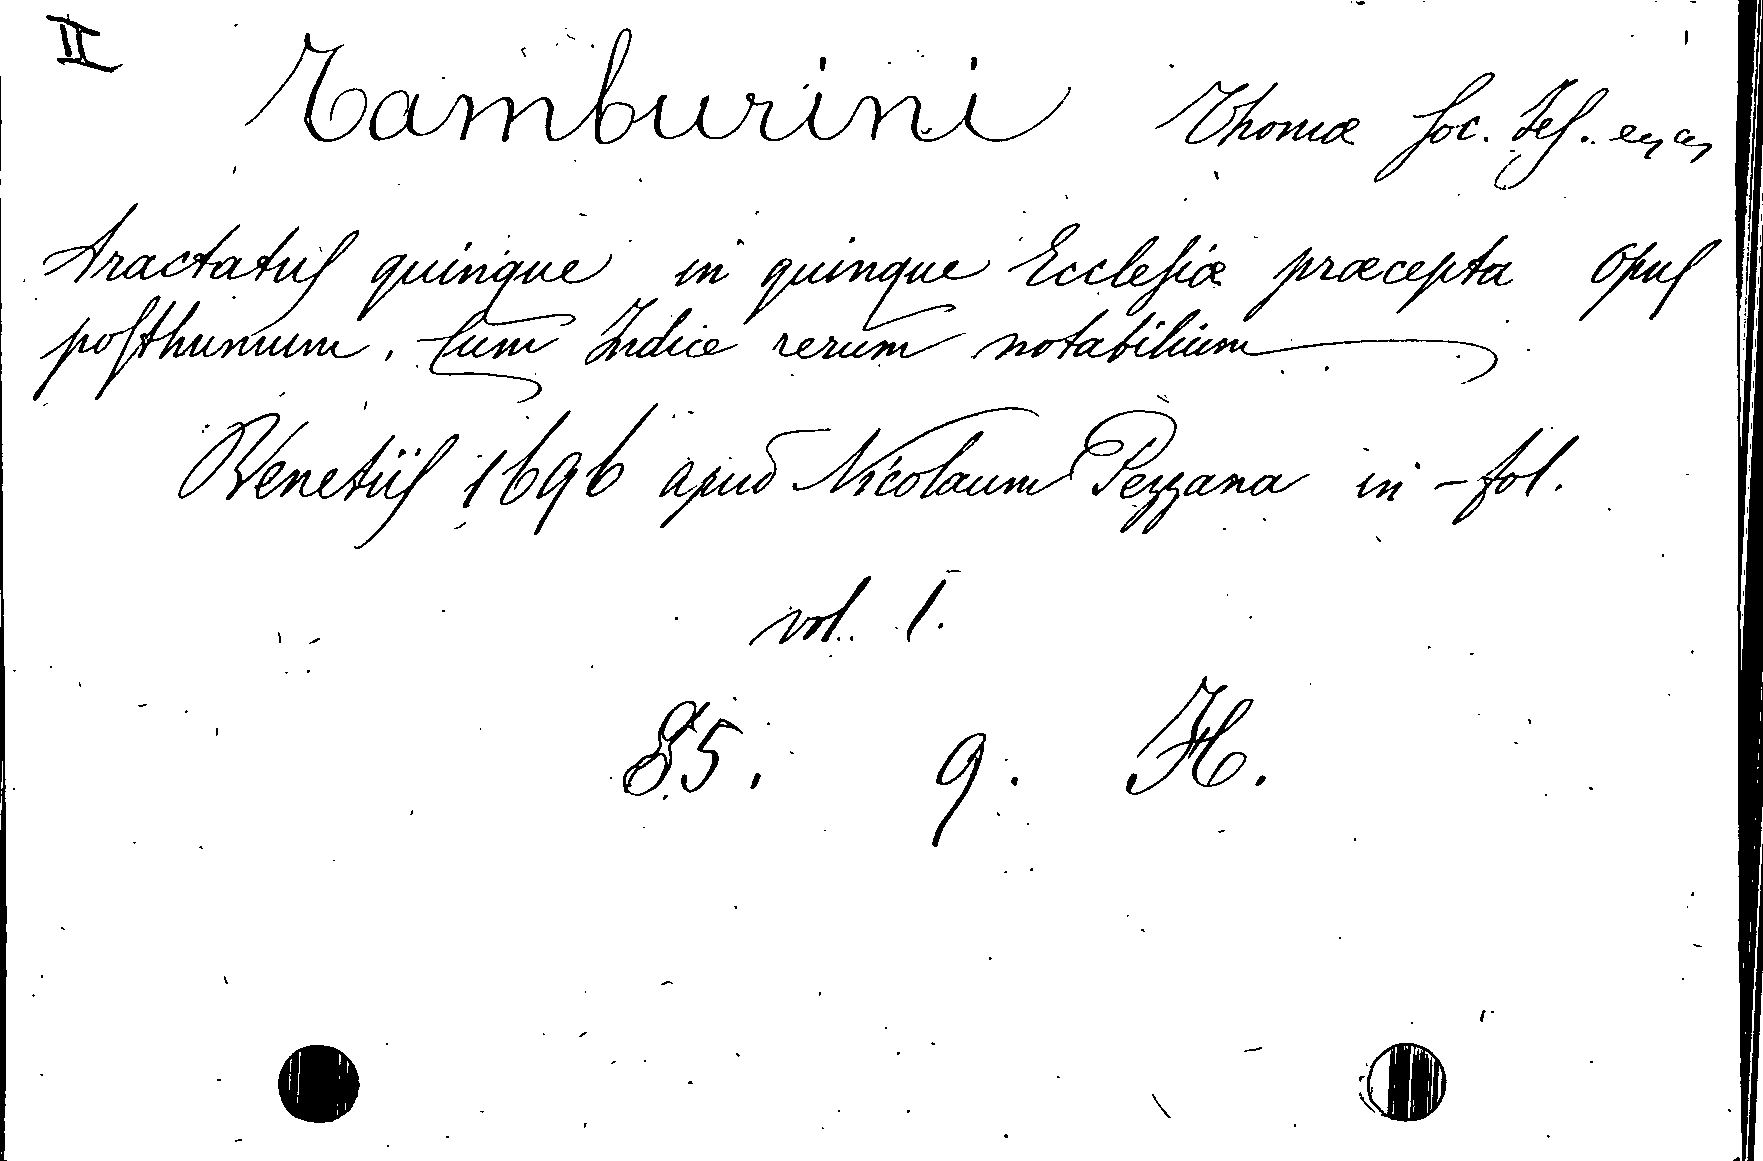 II
Tamburini Thomæ Soc. Jeſ.
tractatuſ quinque in quinque Eccleſiæ præcepta Opuſ
poſthumum. Cum Indice rerum notabilium
Venetiiſ 1696 apud Nicolaum Pezzana in-fol.
vol. 1.
85. 9. H.